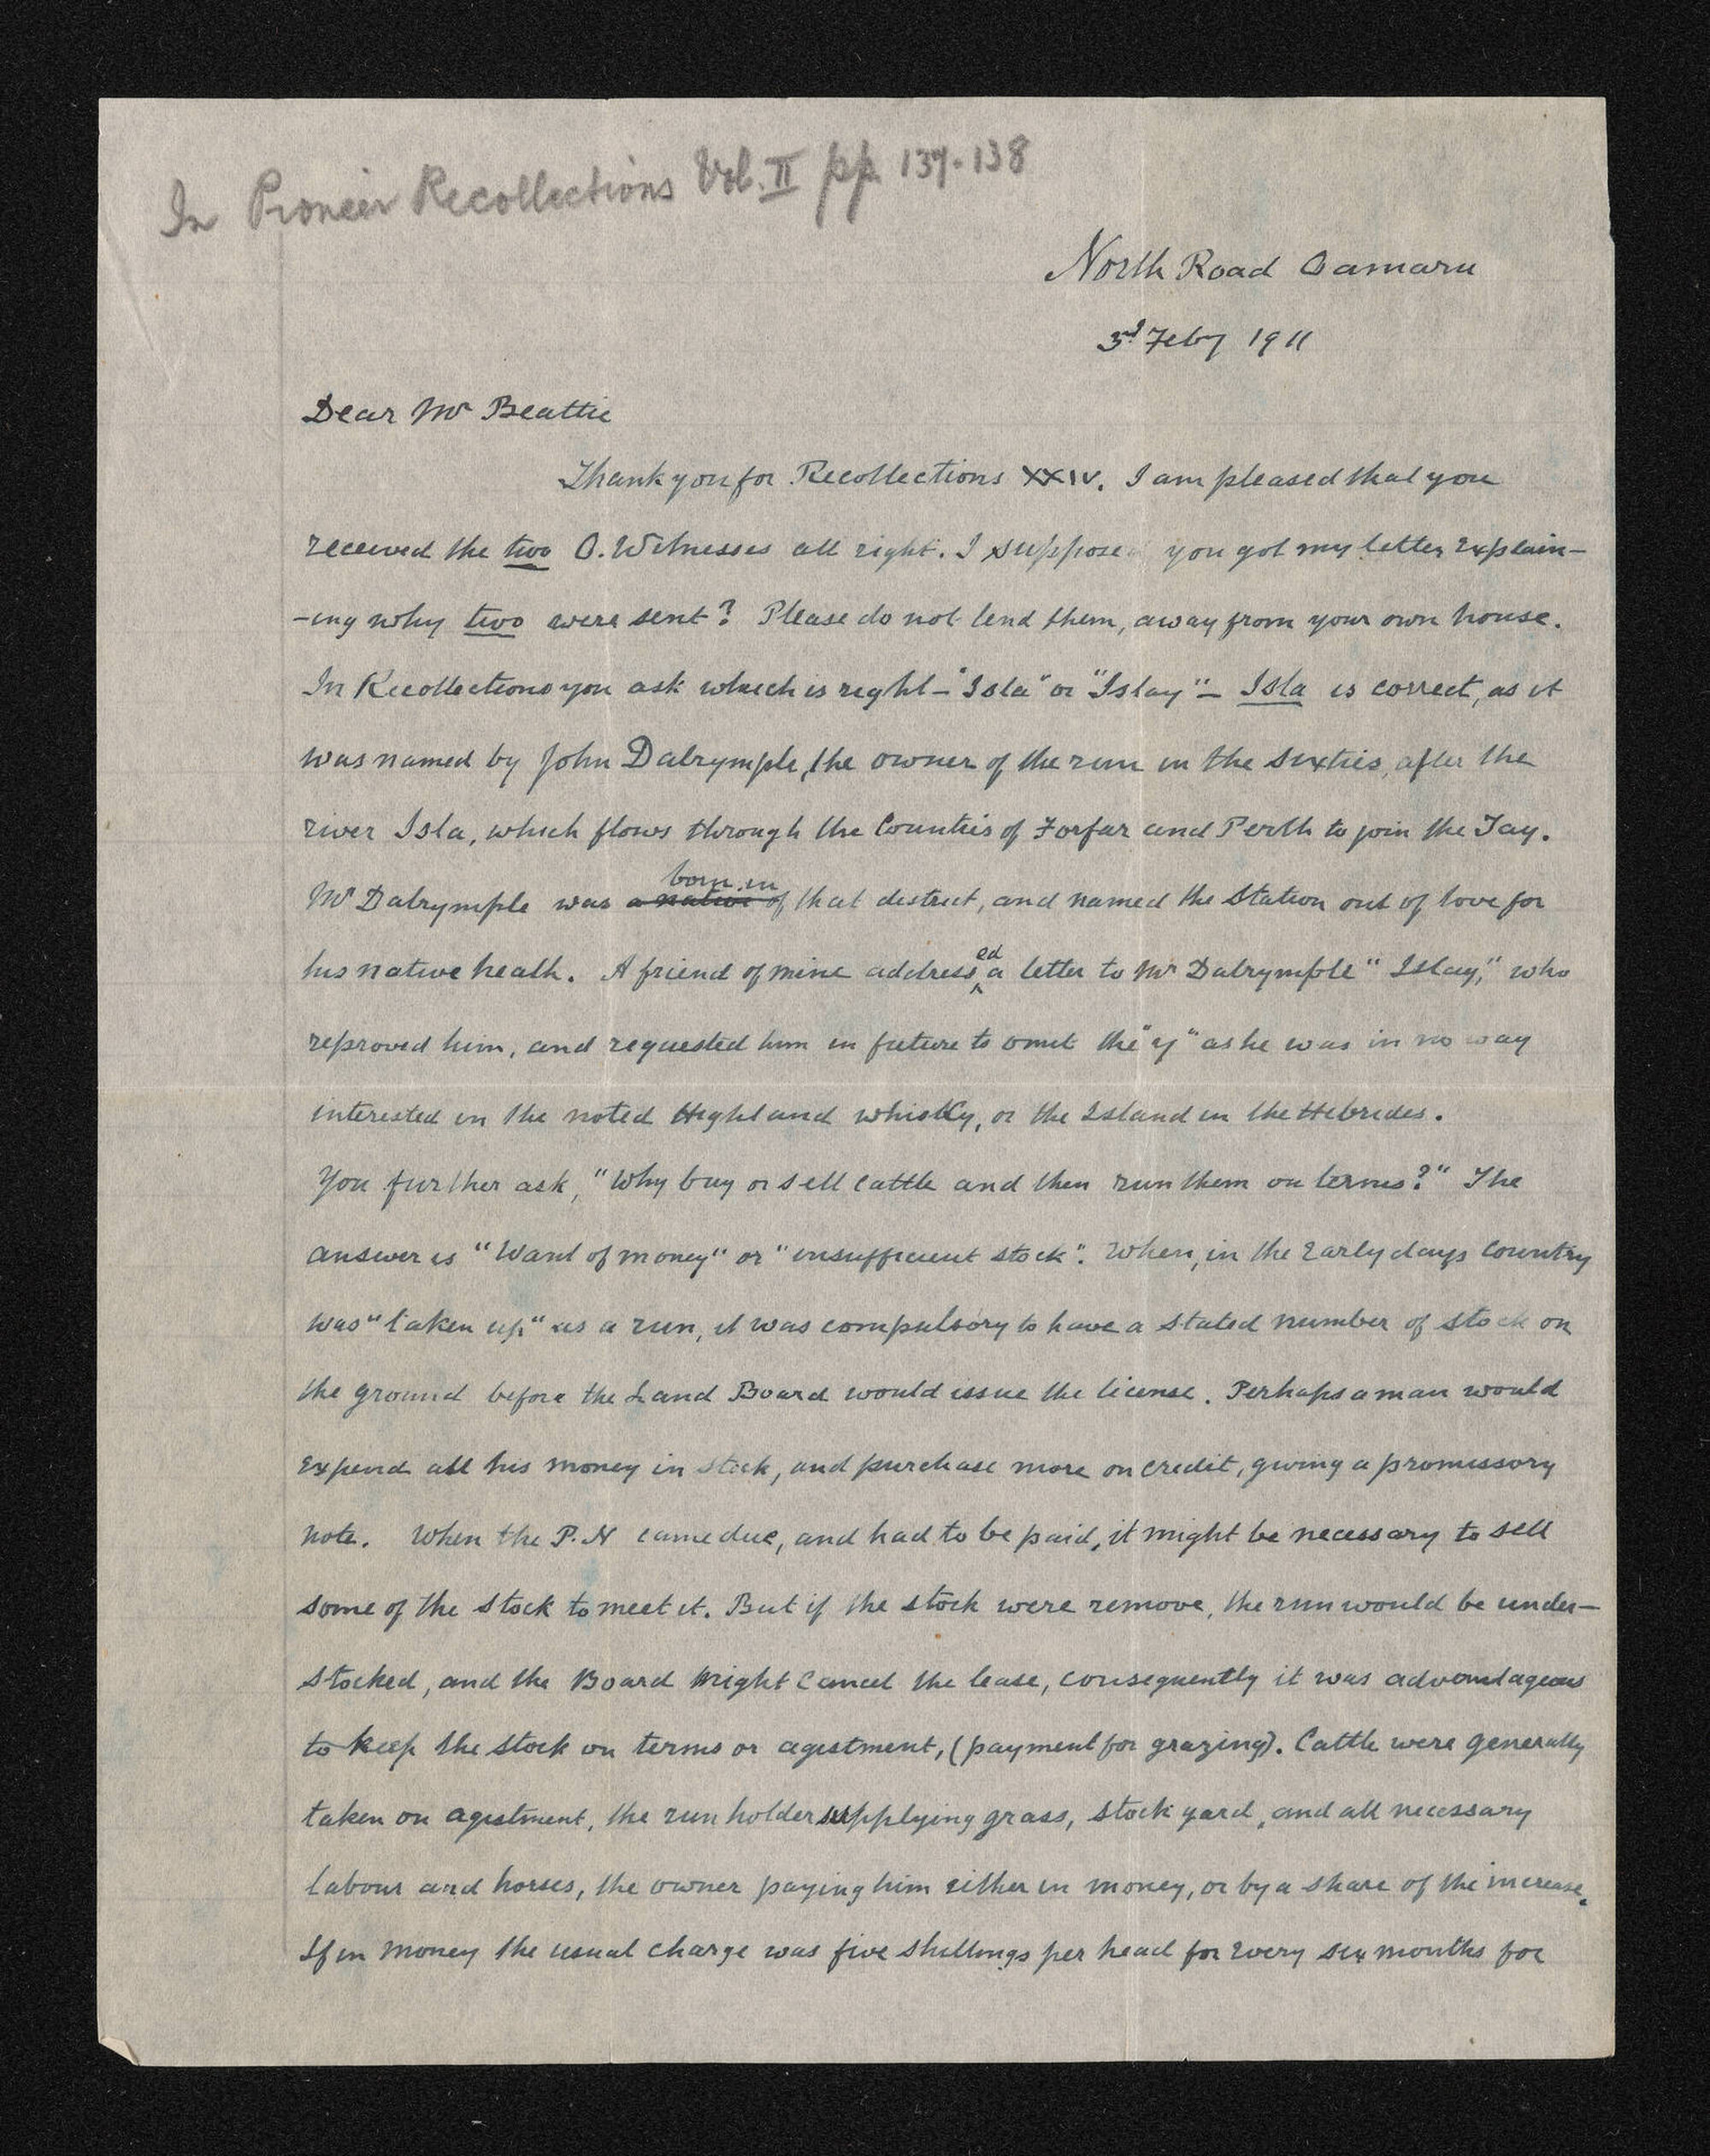 In Pioneer Recollections Vol. II pp. 137-138
North Road Oamaru
3rd Feby 1911
Dear Mr Beattie
Thank you for Recollections XXIV. I am pleased that you
received the two O. Witnesses all right. I suppose you got my letter explain-
-ing why two were sent? Please do not lend them, away from your own house.
In Recollections you ask which is right – "Isla" or "Islay" – Isla is correct, as it
was named by John Dalrymple, the owner of the run in the sixties, after the
river Isla, which flows through the Counties of Forfar and Perth to join the Tay.
born in
Mr Dalrymple was a native of that district, and named the Station out of love for
his native heath. A friend of mine addressed a letter to Mr Dalrymple "Islay," who
reproved him, and requested him in future to omit the "y" as he was in no way
interested in the noted Highland whisky, or the Island in the Hebrides.
You further ask, "Why buy or sell cattle and then run them on terms?" The
answer is "Want of money" or "insufficient stock". When, in the early days country
was "taken up" as a run, it was compulsory to have a stated number of stock on
the ground before the Land Board would issue the license. Perhaps a man would
expend all his money in stock, and purchase more on credit, giving a promissory
note. When the P.N came due, and had to be paid, it might be necessary to sell
some of the stock to meet it. But if the stock were remove, the run would be under-
stocked, and the Board might cancel the lease, consequently it was advantageous
to keep the stock on terms or agistment, (payment for grazing). Cattle were generally
taken on agistment, the run holder supplying grass, stock yard, and all necessary
labour and horses, the owner paying him either in money, or by a share of the increase.
If in money the usual charge was five shillings per head for every six months for